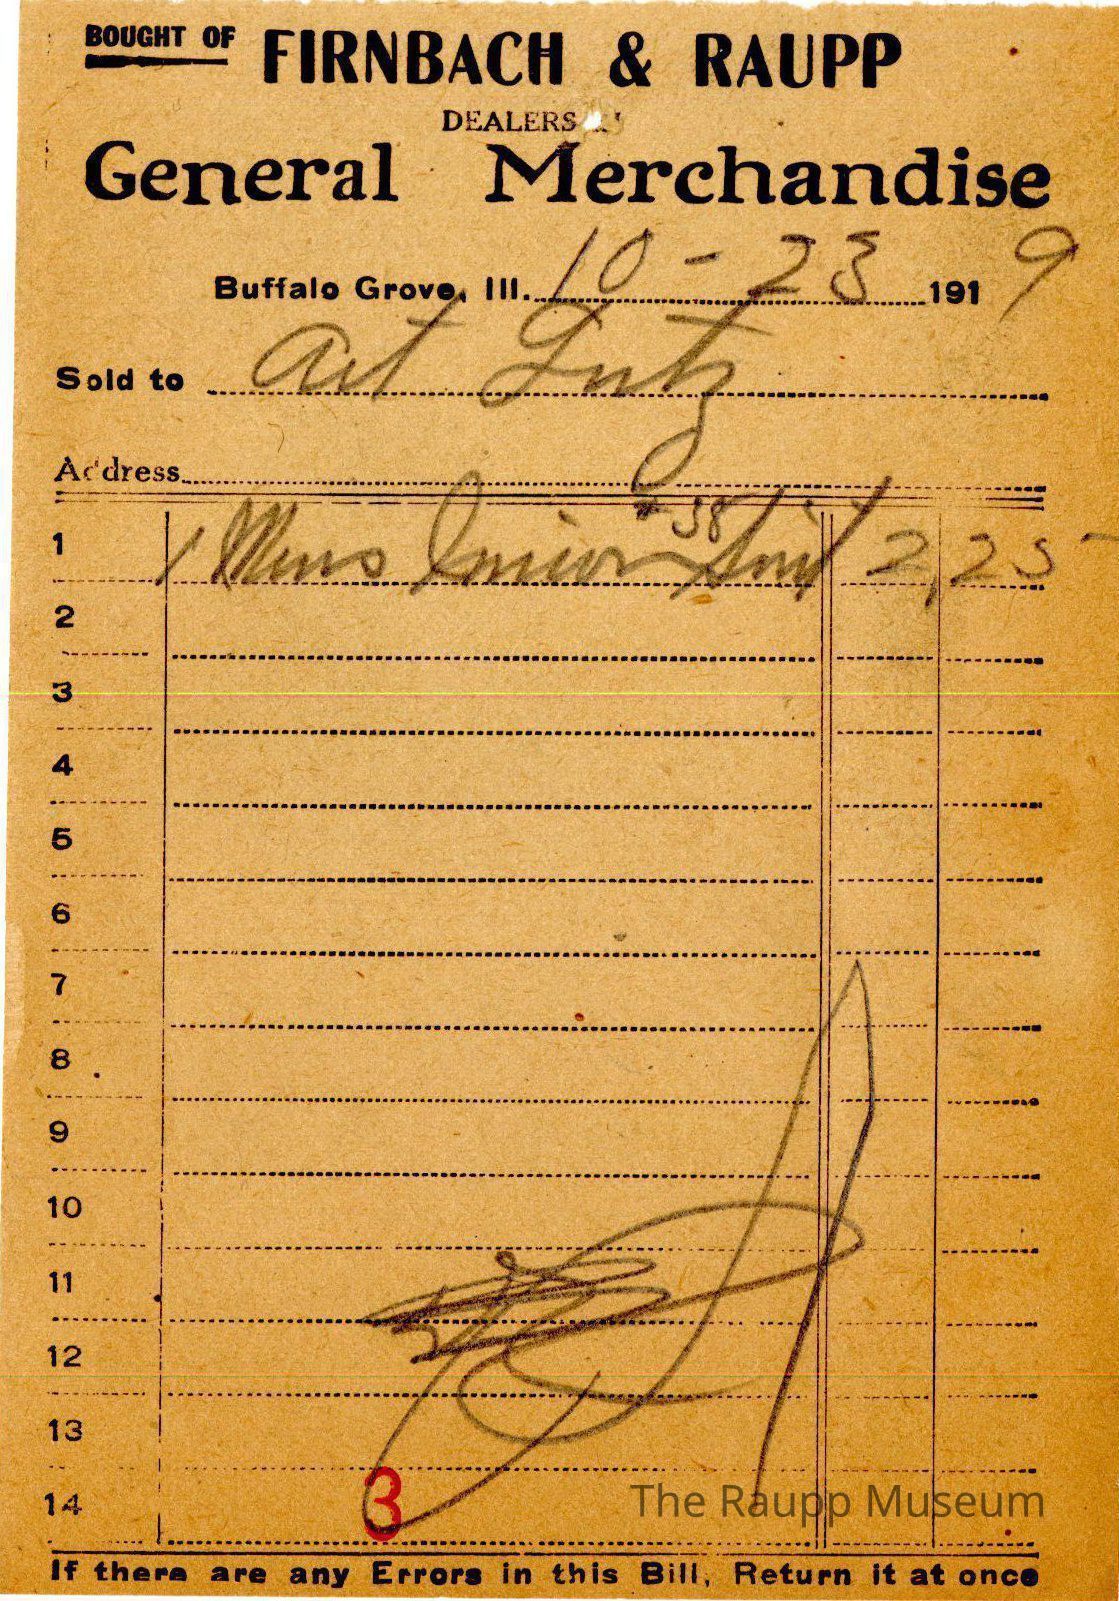 BOUGHT OF FIRNBACH & RAUPP
DEALERS
General Merchandise
Buffalo Grove, Ill. 10 - 23 1919
Sold to Art Lutz
Address
1 1 Mens Union #38 Suit 2,25
2
3
4
5
6
7
8
9
10
11
12
13
14
3
The Raupp Museum
If there are any Errors in this Bill, Return it at once